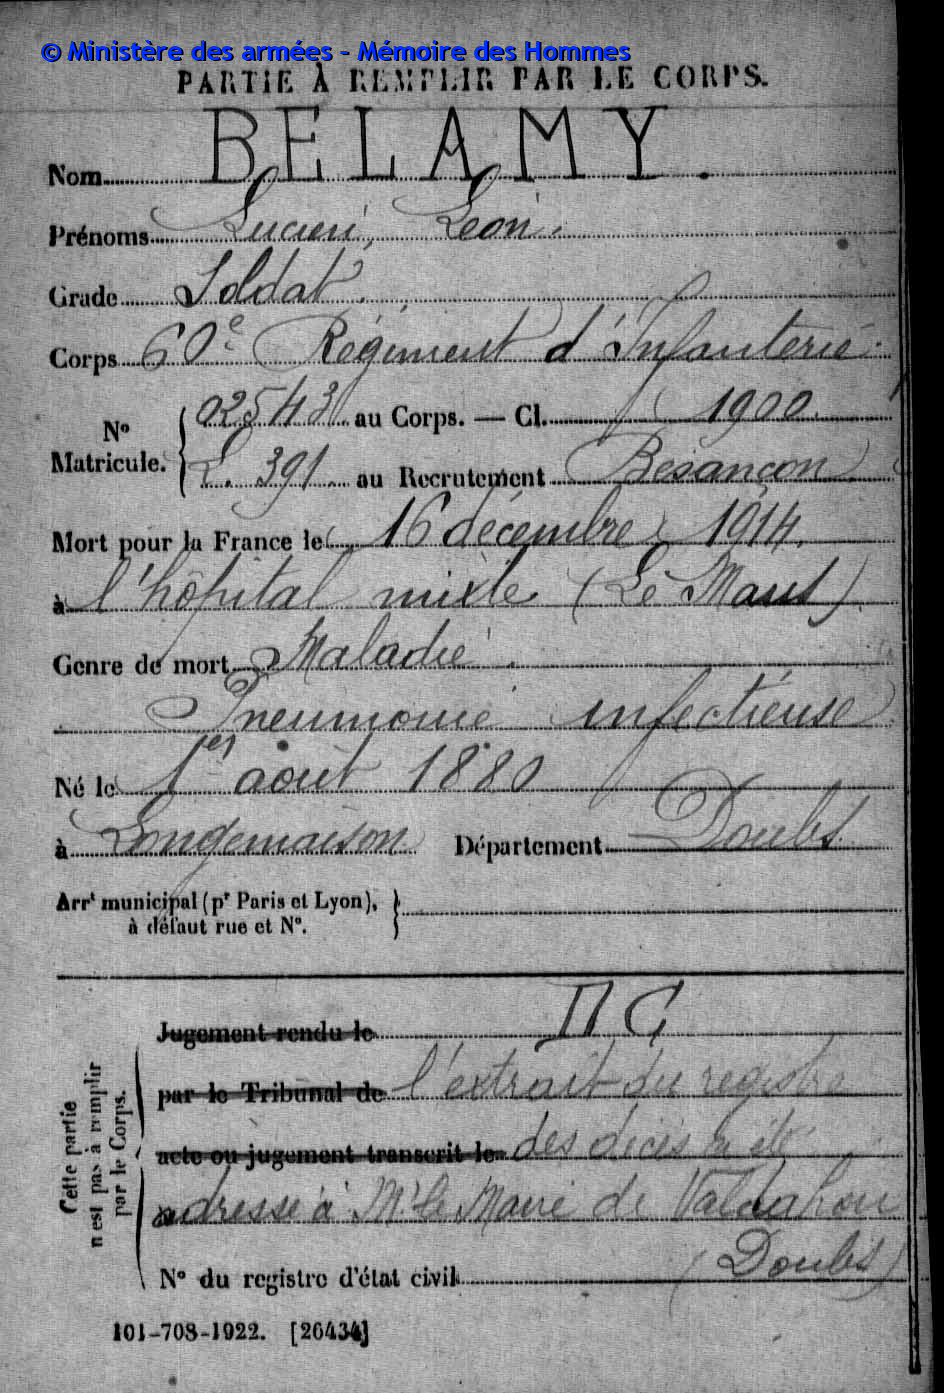 © Ministère des armées - Mémoire des Hommes
PARTIE À REMPLIR PAR LE CORPS.
Nom BELAMY.
Prénoms Lucien, Léon.
Grade Soldat.
Corps 60e Régiment d'Infanterie.
02543 au Corps. — Cl. 1900.
No
Matricule.
L. 391 au Recrutement Besançon
Mort pour la France le 16 décembre 1914.
à l'hôpital mixte (Le Mans).
Genre de mort Maladie.
Pneumonie infectieuse
Né le 1er août 1880
à Longemaison Département Doubs
Arrt municipal (pr Paris et Lyon),
à défaut rue et No.
Jugement rendu le
par le Tribunal de l'extrait du registre
acte ou jugement transcrit le des décès a été
adressé à Mr le Maire de Valdahon
(Doubs)
No du registre d'état civil
Cette partie
n'est pas à remplir
par le Corps.
101-708-1922. [26434]